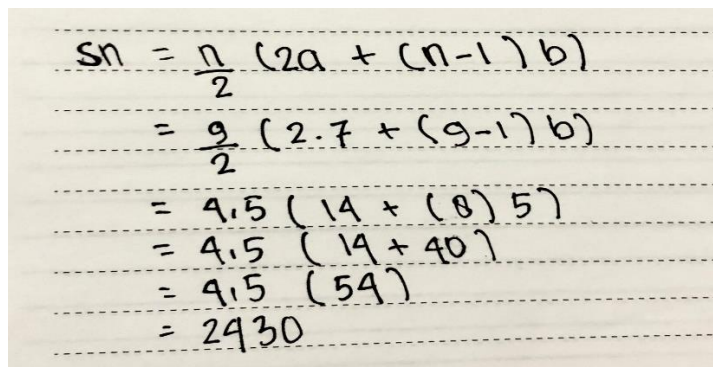 Sn = n/2 (2a + (n-1) b)
= 9/2 (2.7 + (9-1) b)
= 4,5 (14 + (8) 5)
= 4,5 (14 + 40)
= 4,5 (54)
= 2430